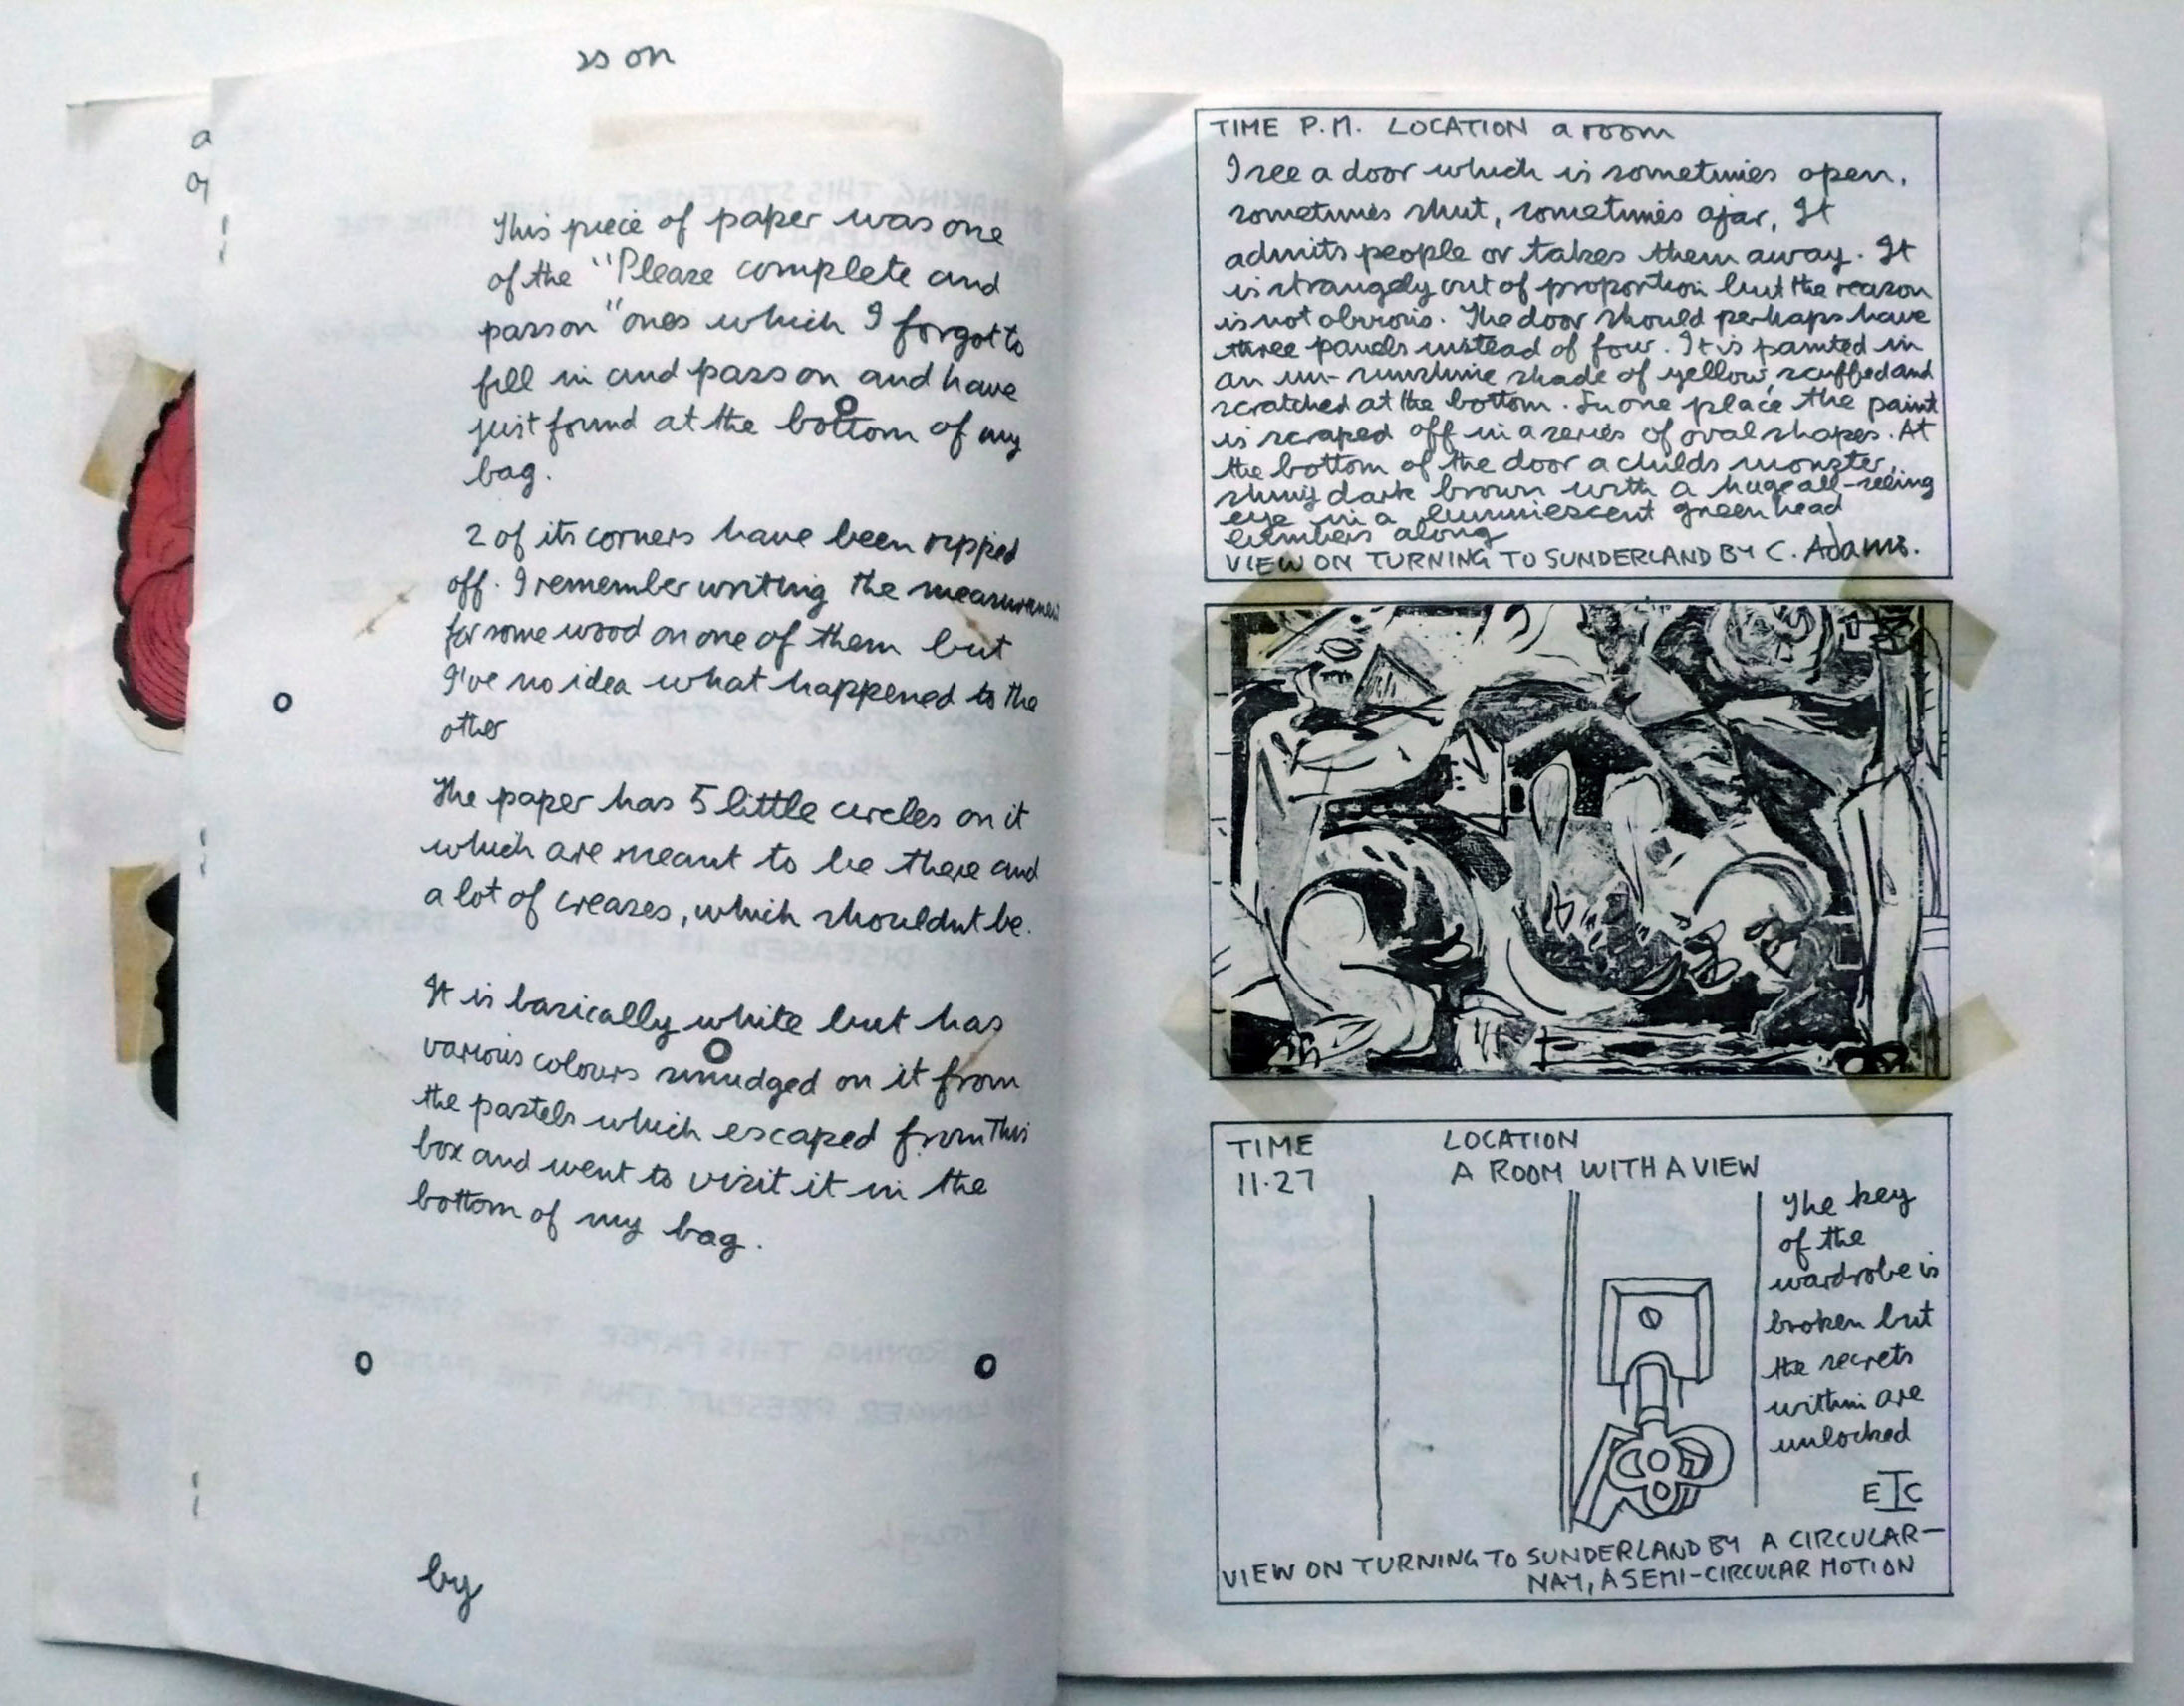 ss on
a
This piece of paper was one
of the "Please complete and
pass on" ones which I forgot to
fill in and pass on and have
just found at the bottom of my
bag.
2 of its corners have been ripped
off. I remember writing the measurement
for some wood on one of them but
I've no idea what happened to the
other
The paper has 5 little circles on it
which are meant to be there and
a lot of creases, which shouldnt be.
It is basically white but has
various colours smudged on it from
the pastels which escaped from this
box and went to visit it in the
bottom of my bag.
by
TIME P.M. LOCATION a room
I see a door which is sometimes open,
sometimes shut, sometimes ajar, It
admits people or takes them away. It
is strangely out of proportion but the reason
is not obvious. The door should perhaps have
three panels instead of four. It is painted in
an un-sunshine shade of yellow, scuffed and
scratched at the bottom. In one place the paint
is scraped off in a series of oval shapes. At
the bottom of the door a childs monster,
shiny dark brown with a huge all-seeing
eye in a luminescent green head
limbers along
VIEW ON TURNING TO SUNDERLAND BY C. Adams.
TIME LOCATION
11.27 A ROOM WITH A VIEW
The key
of the
wardrobe is
broken but
the secrets
within are
unlocked
EIC
VIEW ON TURNING TO SUNDERLAND BY A CIRCULAR-
NAY, A SEMI-CIRCULAR MOTION